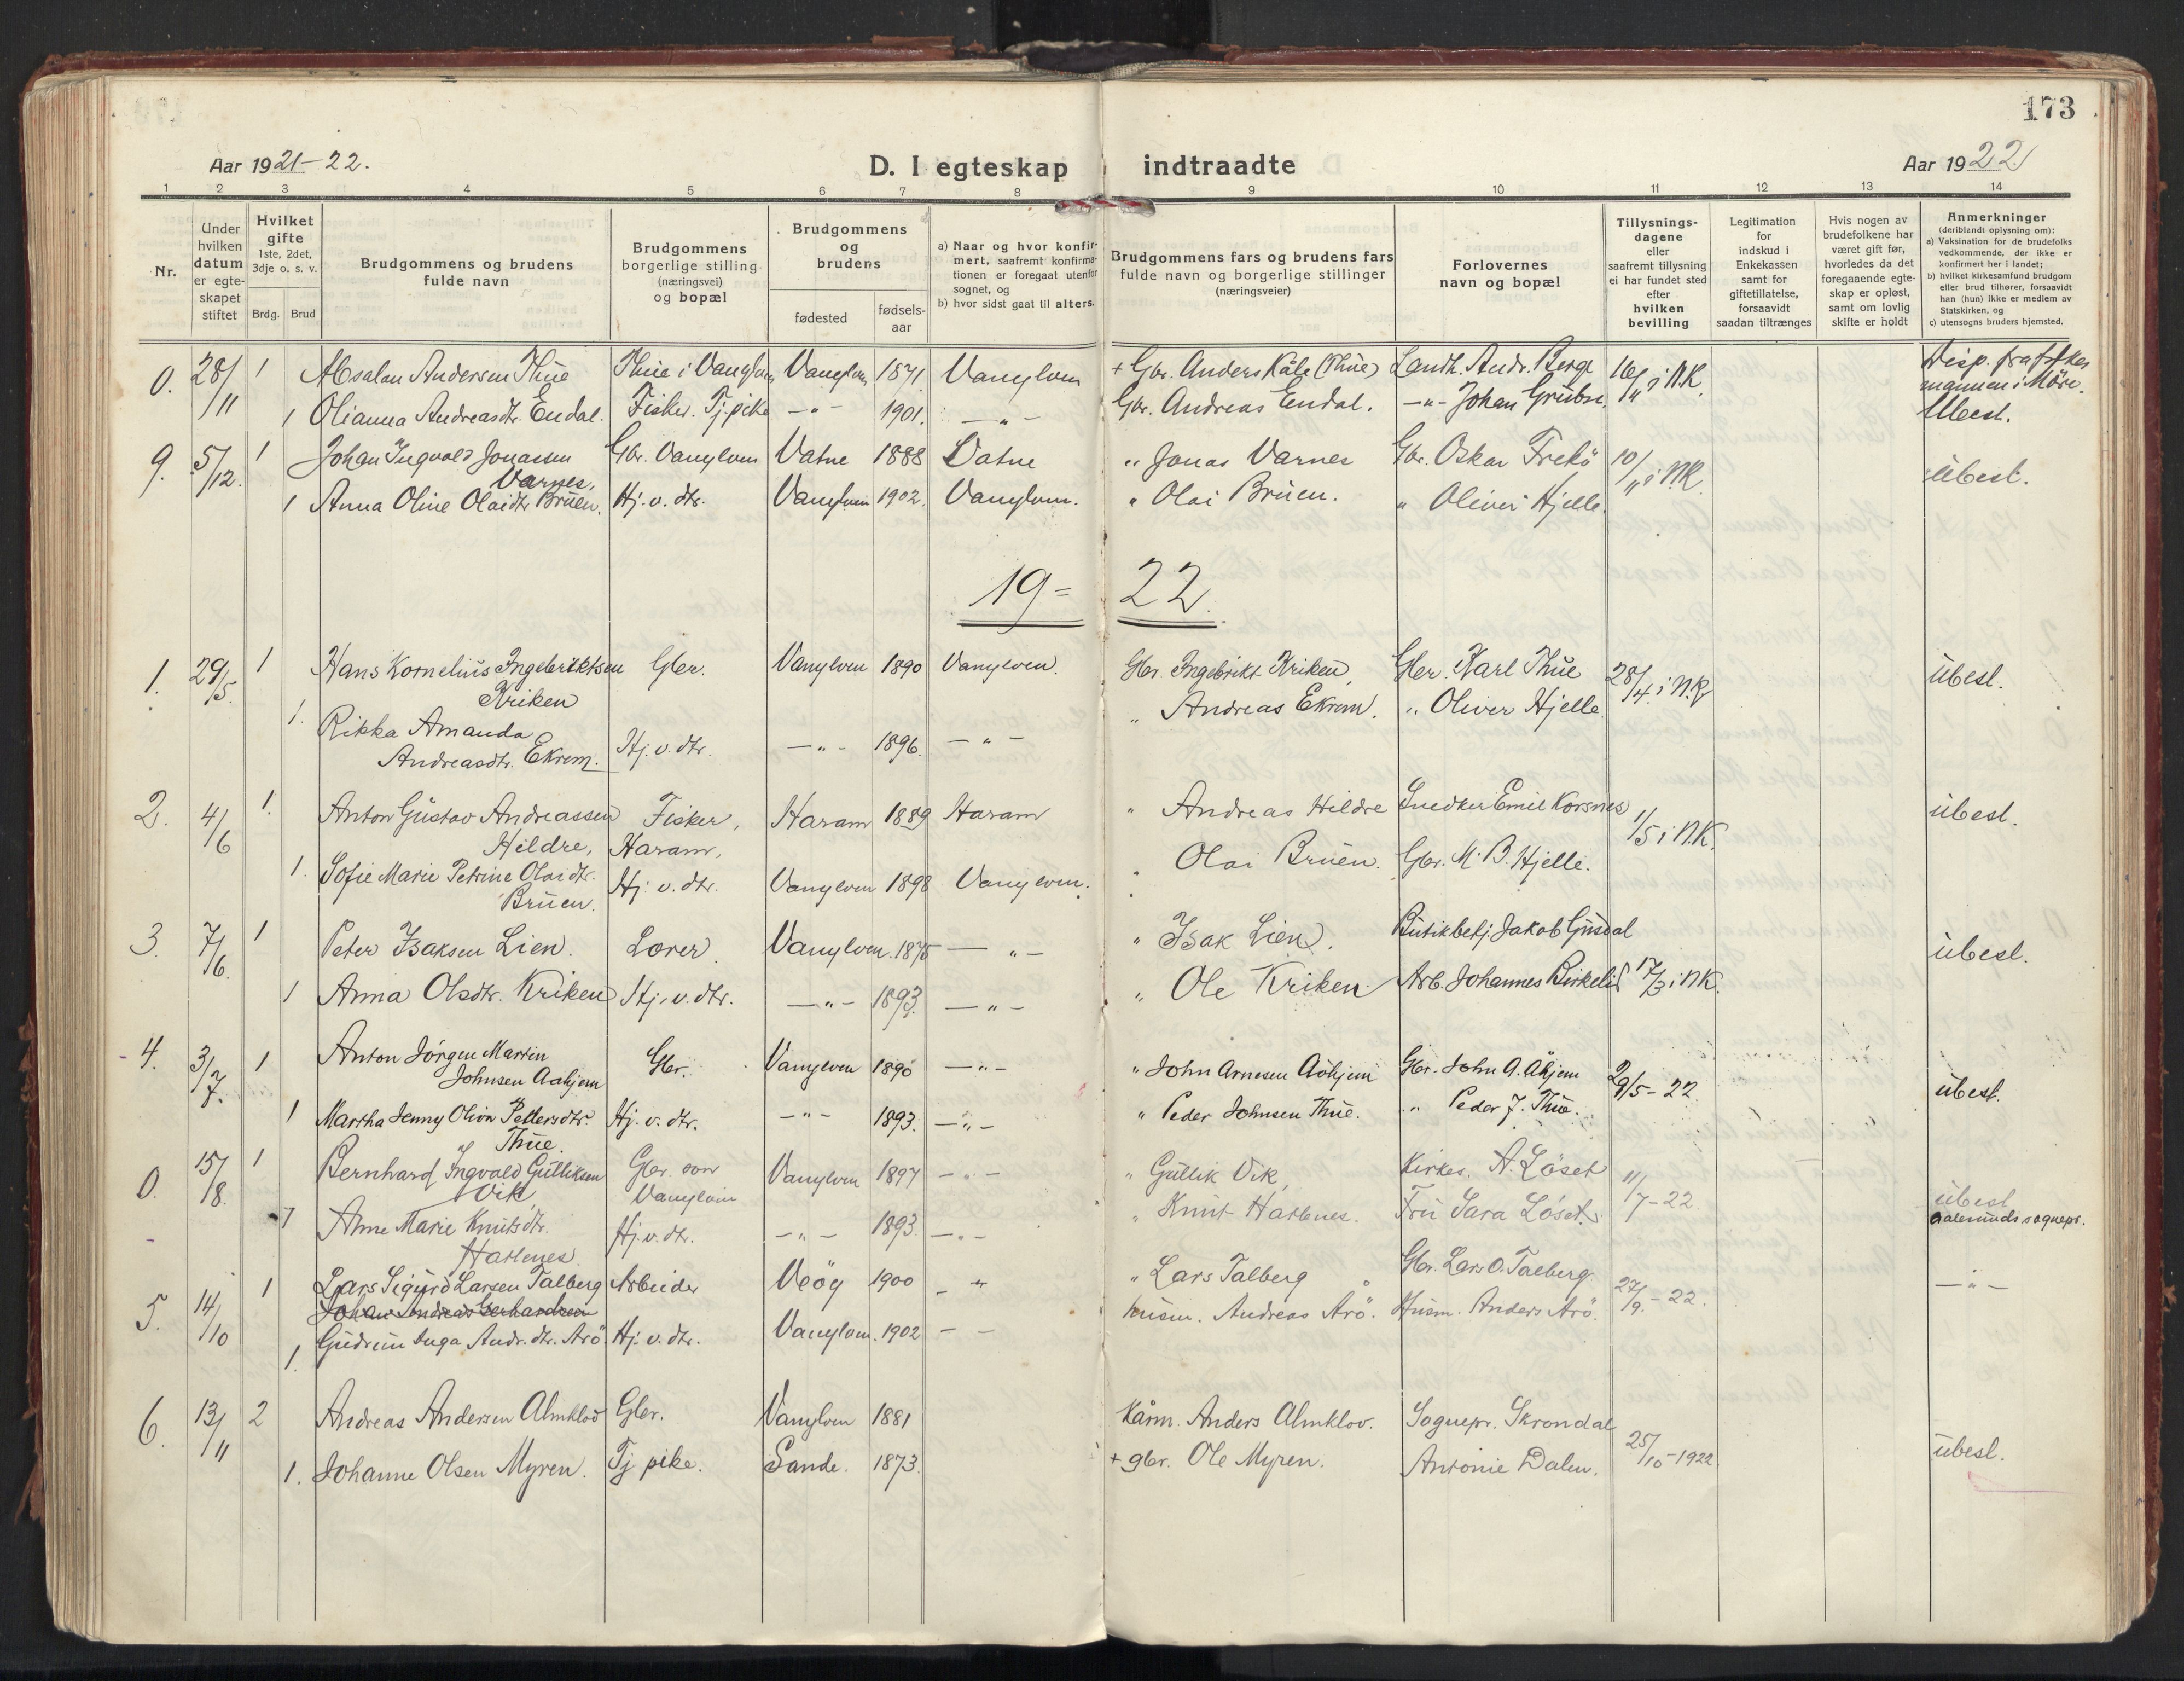 173
Aar 1921-22.
D. I egteskap indtraadte
Aar 1922
1 2 3 4 5 6 7 8 9 10 11 12 13 14
Nr.
Under hvilken datum er egte-skapet stiftet
Hvilket gifte 1ste, 2det, 3dje o. s. v.
Brdg. Brud
Brudgommens og brudens fulde navn
Brudgommens borgerlige stilling (næringsvei) og bopæl
Brudgommens og brudens
fødested
fødsels-aar
a) Naar og hvor konfir-mert, saafremt konfirma-tionen er foregaat utenfor sognet, og
b) hvor sidst gaat til alters.
Brudgommens fars og brudens fars fulde navn og borgerlige stillinger (næringsveier)
Forlovernes navn og bopæl
Tillysnings-dagene eller saafremt tillysning ei har fundet sted efter hvilken bevilling
Legitimation for indskud i Enkekassen samt for giftetillatelse, forsaavidt saadan tiltrænges
Hvis nogen av brudefolkene har været gift før, hvorledes da det foregaaende egte-skap er opløst, samt om lovlig skifte er holdt
Anmerkninger (deriblandt oplysning om):
a) Vaksination for de brudefolks vedkommende, der ikke er konfirmert her i landet;
b) hvilket kirkesamfund brudgom eller brud tilhører, forsaavidt han (hun) ikke er medlem av Statskirken, og
c) utensogns bruders hjemsted.
0. 28/11 1 Absalon Andersen Thue Thue i Vanylven Vanylven 1871 Vanylven + Gbr. Anders Kåle (Thue) Landh. Andr. Berge 16/11 i N.K. Disp. fra fylkes
mannen i Møre.
1 Olianna Andreasdtr. Endal. Fisker. Tj.pike -"- 1901. -"- Gbr. Andreas Endal. -"- Johan Grubse. Ubesl.
9. 5/12. 1 Johan Ingvald Jonassen Gbr. Vanylven Vatne 1888 Vatne " Jonas Varnes Gbr. Oskar Frekö 10/11 i N.K. übesl.
Varnes,
1 Anna Oline Olaidtr. Brüen. Hj. v. dtr. Vanylven 1902. Vanylven. " Olai Brüen. " Oliver Hjelle.
19 = 22.
1. 29/5. 1 Hans Kornelius Ingebriktsen Gbr. Vanylven 1890 Vanylven. Gbr. Ingebrikt Kriken, Gbr. Karl Thue 28/4. i N.K. übesl.
Kriken
1. Rikka Amanda " Andreas Ekrem. " Oliver Hjelle.
Andreasdtr. Ekrem. Hj. v. dtr. -"- 1896. -"-
2. 4/6 1. Anton Güstav Andreassen Fisker, Haram 1889 Haram " Andreas Hildre Snedker Emil Korsnes 1/5 i N.K. übesl.
Hildre, Haram,
1. Sofie Marie Petrine Olaidtr. Hj. v. dtr. Vanylven 1898 Vanylven. " Olai Brüen. Gbr. M. B. Hjelle.
Brüen.
3. 7/6. 1 Peter Isaksen Lien. Lærer. Vanylven. 1875 -"- " Isak Lien. Bütikbetj. Jakob Gusdal übesl.
1 Anna Olsdtr. Kriken Hj. v. dtr. -"- 1893. -"- " Ole Kriken Arb. Johannes Birkelid 17/3 i N.K.
4. 3/7. 1 Anton Jörgen Martin
Johnsen Aahjem Gbr. Vanylven 1890 -"- " John Arnesen Aahjem Gbr. John A. Åhjem 29/5-22 übesl.
1 Martha Jenny Oliva Pettersdtr. Hj. v. dtr. -"- 1893. -"- " Peder Johnsen Thüe. " Peder J. Thüe.
Thüe.
0. 15/8. 1 Bernhard Ingvald Gülliksen Gbr. søn Vanylven 1897 -"- " Güllik Vik, Kirkes. A. Löset 11/7-22 übesl
Vik Vanylven
1 Anne Marie Knütsdtr. Hj. v. dtr. -"- 1893. -"- " Knüt Hatlenes. Frü Sara Löset. Aalesunds sognepr.
Hatlenes
5. 14/10 1 Lars Sigürd Larsen Talberg Arbeider Veöy 1900 -"- " Lars Talberg Gbr. Lars O. Talberg 27/9.-22. -"-
Johan Andreas Gerhardsen
1. Güdrün Inga Andr.dtr. Arö. Hj. v. dtr. Vanylven. 1902 - - Hüsm. Andreas Arö. Hüsm. Anders Arö.
6. 13/11 2 Andreas Andersen Almklov Gbr. Vanylven 1881 Kårm. Anders Almklov. Sognepr. Skrondal 25/10-1922 übesl.
1. Johanne Olsen Myren. Tj. pike. Sande. 1873. + gbr. Ole Myren. Antonie Dalen.